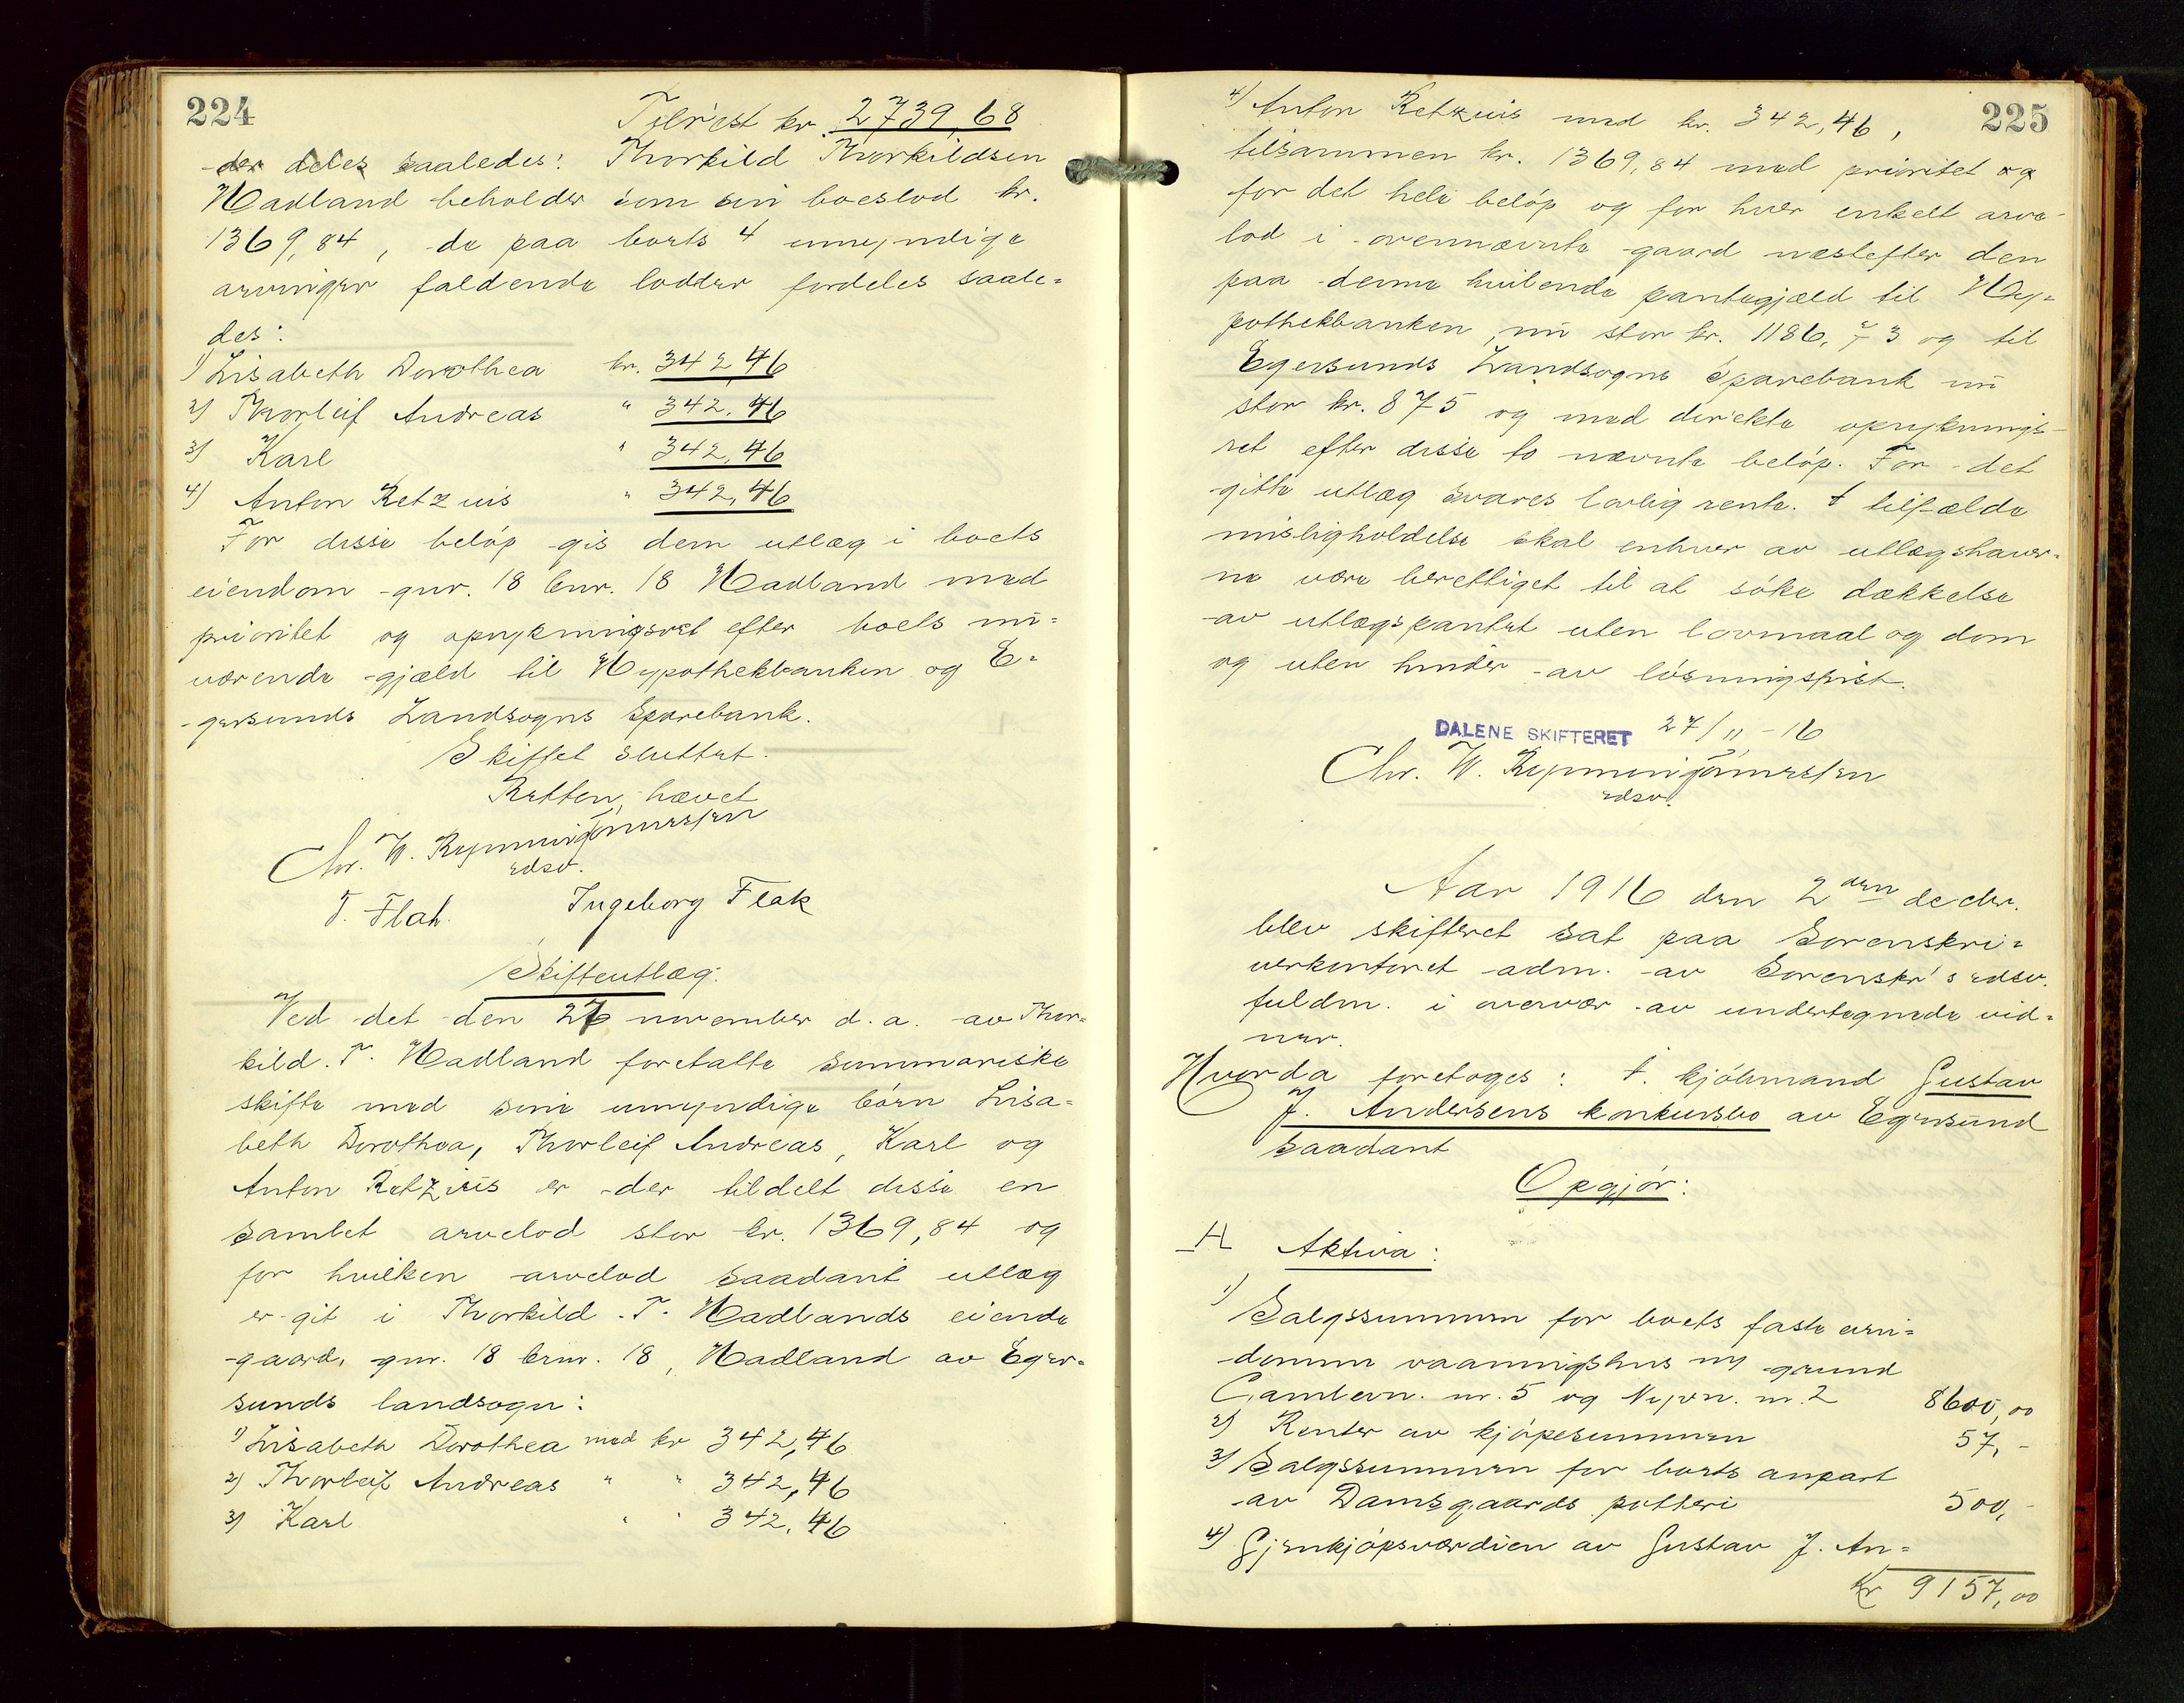 224
Tilrest kr. 2739,68
der deles saaledes: Thorkild Thorkildsen
Hadland beholder som sin boeslod kr.
1369,84, de paa boets 4 umyndige
arvinger faldende lodder fordeles saale-
des:
1) Lisabeth Dorothea kr. 342,46
2) Thorleif Andreas " 342,46
3) Karl " 342,46
4) Anton Retzius " 342,46
For disse beløp gis dem utlæg i boets
eiendom gnr. 18 bnr. 18 Hadland med
prioritet og oprykningsret efter boets nu-
værende gjæld til Hypothekbanken og E-
gersunds Landsogns Sparebank.
Skiftet sluttet.
Retten hævet
Chr. W. Rynning Tønnessen
edsv.
T. Flak. Ingeborg Flak
Skifteutlæg:
Ved det den 27 november d. a. av Thor-
kild. T. Hadland foretatte summariske
skifte med sine umyndige børn Lisa-
beth Dorothea, Thorleif Andreas, Karl og
Anton Retzius er der tildelt disse en
samlet arvelod stor kr. 1369,84 og
for hvilken arvelod saadant utlæg
er git i Thorkild. T. Hadlands eiende
gaard, gnr. 18 bnr. 18, Hadland av Eger-
sunds landsogn:
1) Lisabeth Dorothea med kr 342,46
2) Thorleif Andreas " " 342,46
3) Karl " " 342,46
225
4) Anton Retzius med kr. 342,46,
tilsammen kr. 1369,84 med prioritet og
for det hele beløp og for hver enkelt arve-
lod i ovennævnte gaard næstefter den
paa denne hvilende pantegjæld til Hy-
pothekbanken, nu stor kr. 1186,73 og til
Egersunds Landsogns Sparebank nu
stor kr. 875 og med direkte opryknings-
ret efter disse to nævnte beløp. For det
gitte utlæg svares lovlig rente. I tilfælde
misligholdelse skal enhver av utlægshaver-
ne være berettiget til at søke dækkelse
av utlægspantet uten lovmaal og dom
og uten hinder av løsningsfrist.
DALENE SKIFTERET 27/11-16
Chr. W. Rynning Tønnessen
edsv.
Aar 1916 den 2den decbr.
blev skifteret sat paa Sorenskri-
verkontoret adm. av Sorenskr's edsv.
fuldm. i overvær av undertegnede vid-
ner.
Hvorda foretoges: I. kjøbmand Gustav
J. Andersens konkursbo av Egersund
saadant
Opgjør:
A Aktiva:
1) Salgssummen for boets faste eien-
domme vaaningshus og grund
Gamlevn. nr. 5 og Nyvn. nr. 2 8600,00
2) Renter av kjøpesummen 57,-
3) Salgssummen for boets anpart
av Damsgaards potteri 500,-
4) Gjenkjøpsværdien av Gustav J. An-
Kr 9157,00